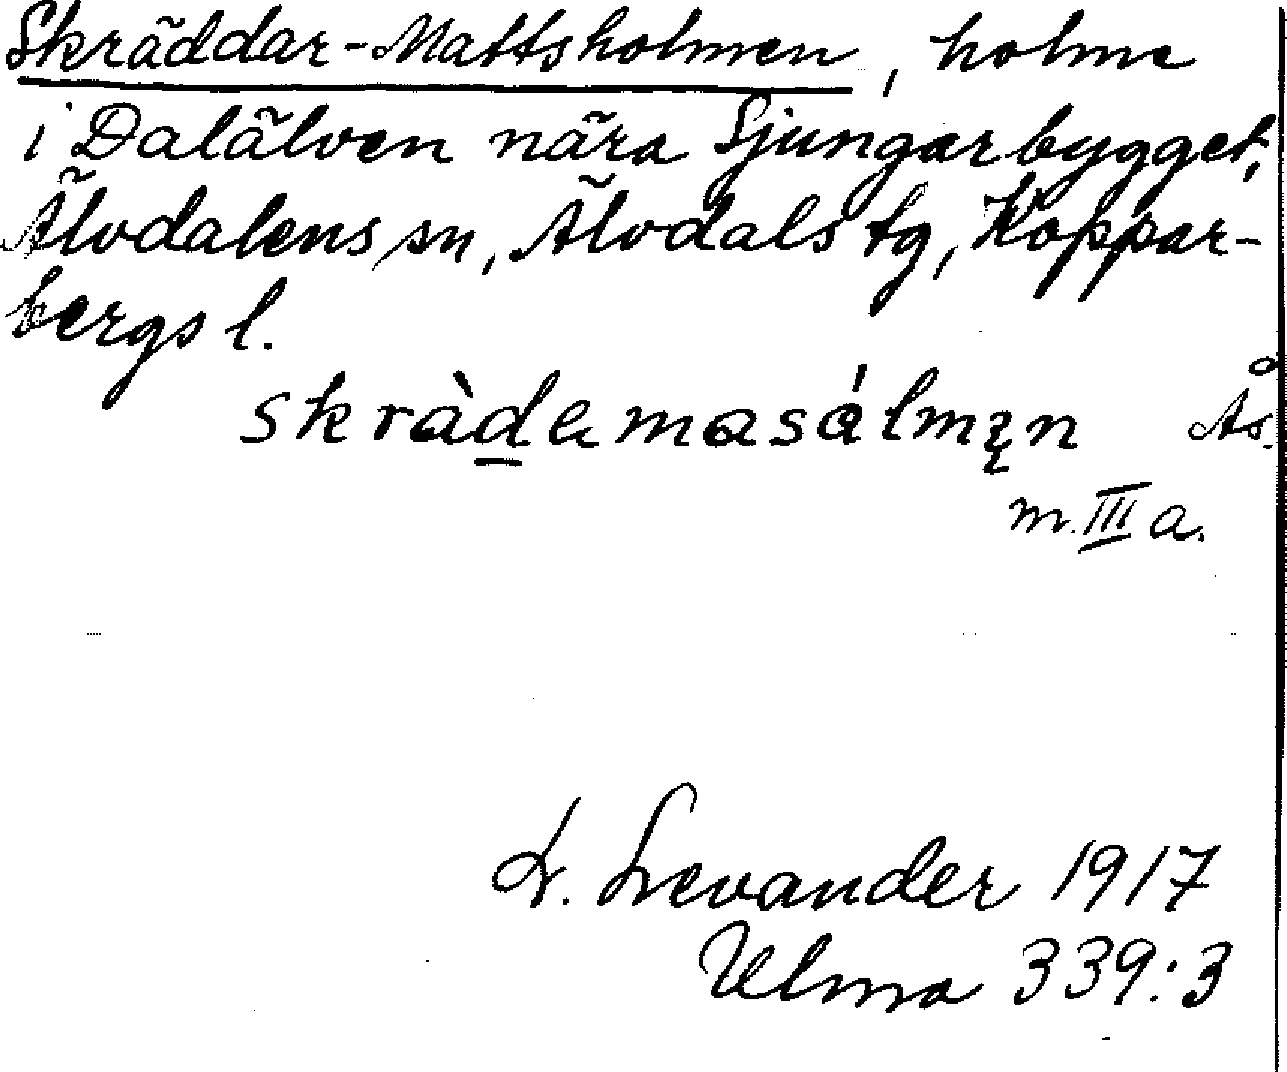 Skräddar-Mattsholmen, holme
i Dalälven nära Sjungarbygget,
Älvdalens sn, Älvdals tg, Koppar-
bergs l.
skràdemasálmįn Ås.
m. III a.
L. Levander 1917
Ulma 339:3